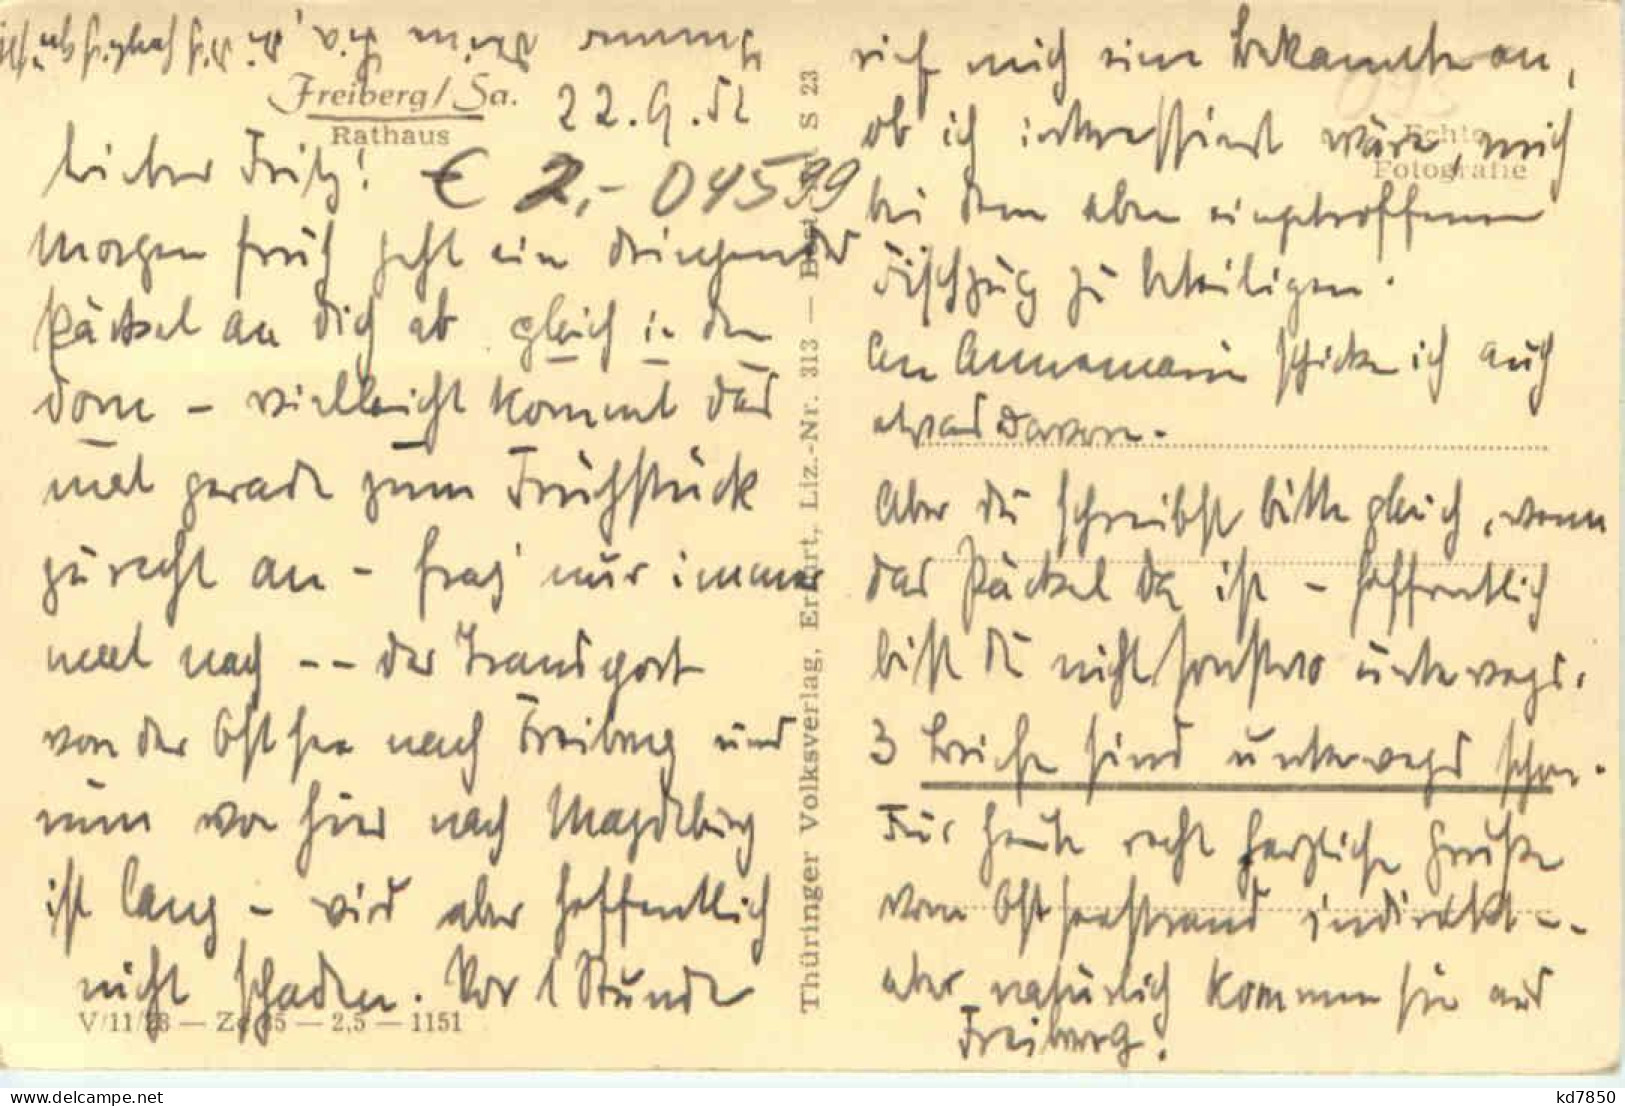 Freiberg/Sa.
Rathaus
22.9.52
Lieber Fritz!
€ 2,- 04599
Morgen früh geht ein dringendes
Päcksel an Dich ab gleich in den
Dom - vielleicht kommt das
mal gerade zum Frühstück
zurecht an - frag' nur immer
mal nach -- der Transport
von der Ostsee nach Freiberg und
nun von hier nach Magdeburg
ist lang - wird aber hoffentlich
nicht schaden. Vor 1 Stunde
V/11/28 — Zc 35 — 2,5 — 1151
Thüringer Volksverlag, Erfurt, Liz.-Nr. 313 — S 23
Echte
Fotografie
rief mich eine Bekannte an,
ob ich interessiert wäre, mich
bei dem eben eingetroffenen
Fischzug zu beteiligen.
An Annemarie schicke ich auch
etwas davon.
Aber Du schreibst bitte gleich, wenn
das Päcksel da ist - hoffentlich
bist Du nicht sonstwo unterwegs.
3 Briefe sind unterwegs schon.
Für heute recht herzliche Grüße
vom Ostseestrand indirekt --
aber natürlich kommen sie aus
Freiberg!
Immer Deine Pia, die Dich herzlich
kd7850